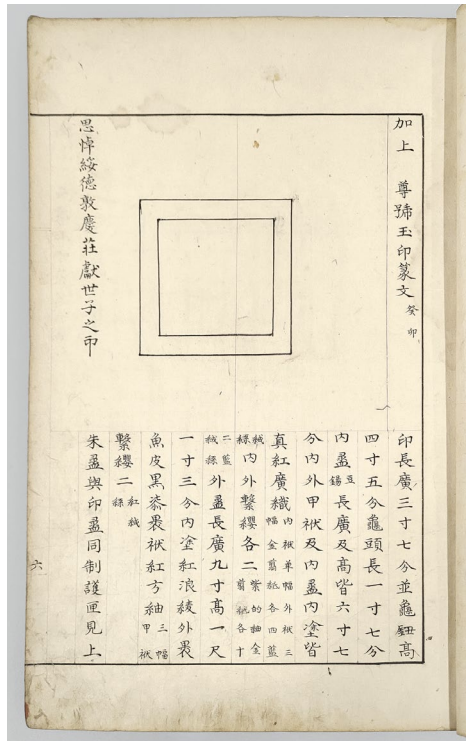 加上 尊號玉印篆文 癸卯
思悼綏德敦慶莊獻世子之印
印長廣三寸七分並龜鈕高
四寸五分龜頭長一寸七分
內盝 豆錫 長廣及高皆六寸七
分內外甲袱及內盝內塗皆
真紅廣織 內袱單幅外袱三幅金剪紙各四藍
絨絲 內外繫纓各二 紫的紬金剪紙各十
二藍絨絲 外盝長廣九寸高一尺
一寸三分內塗紅浪綾外裹
魚皮黑漆裹袱紅方紬 三幅甲袱
繫纓二 紅絨絲
朱盝與印盝同制護匣見上
六